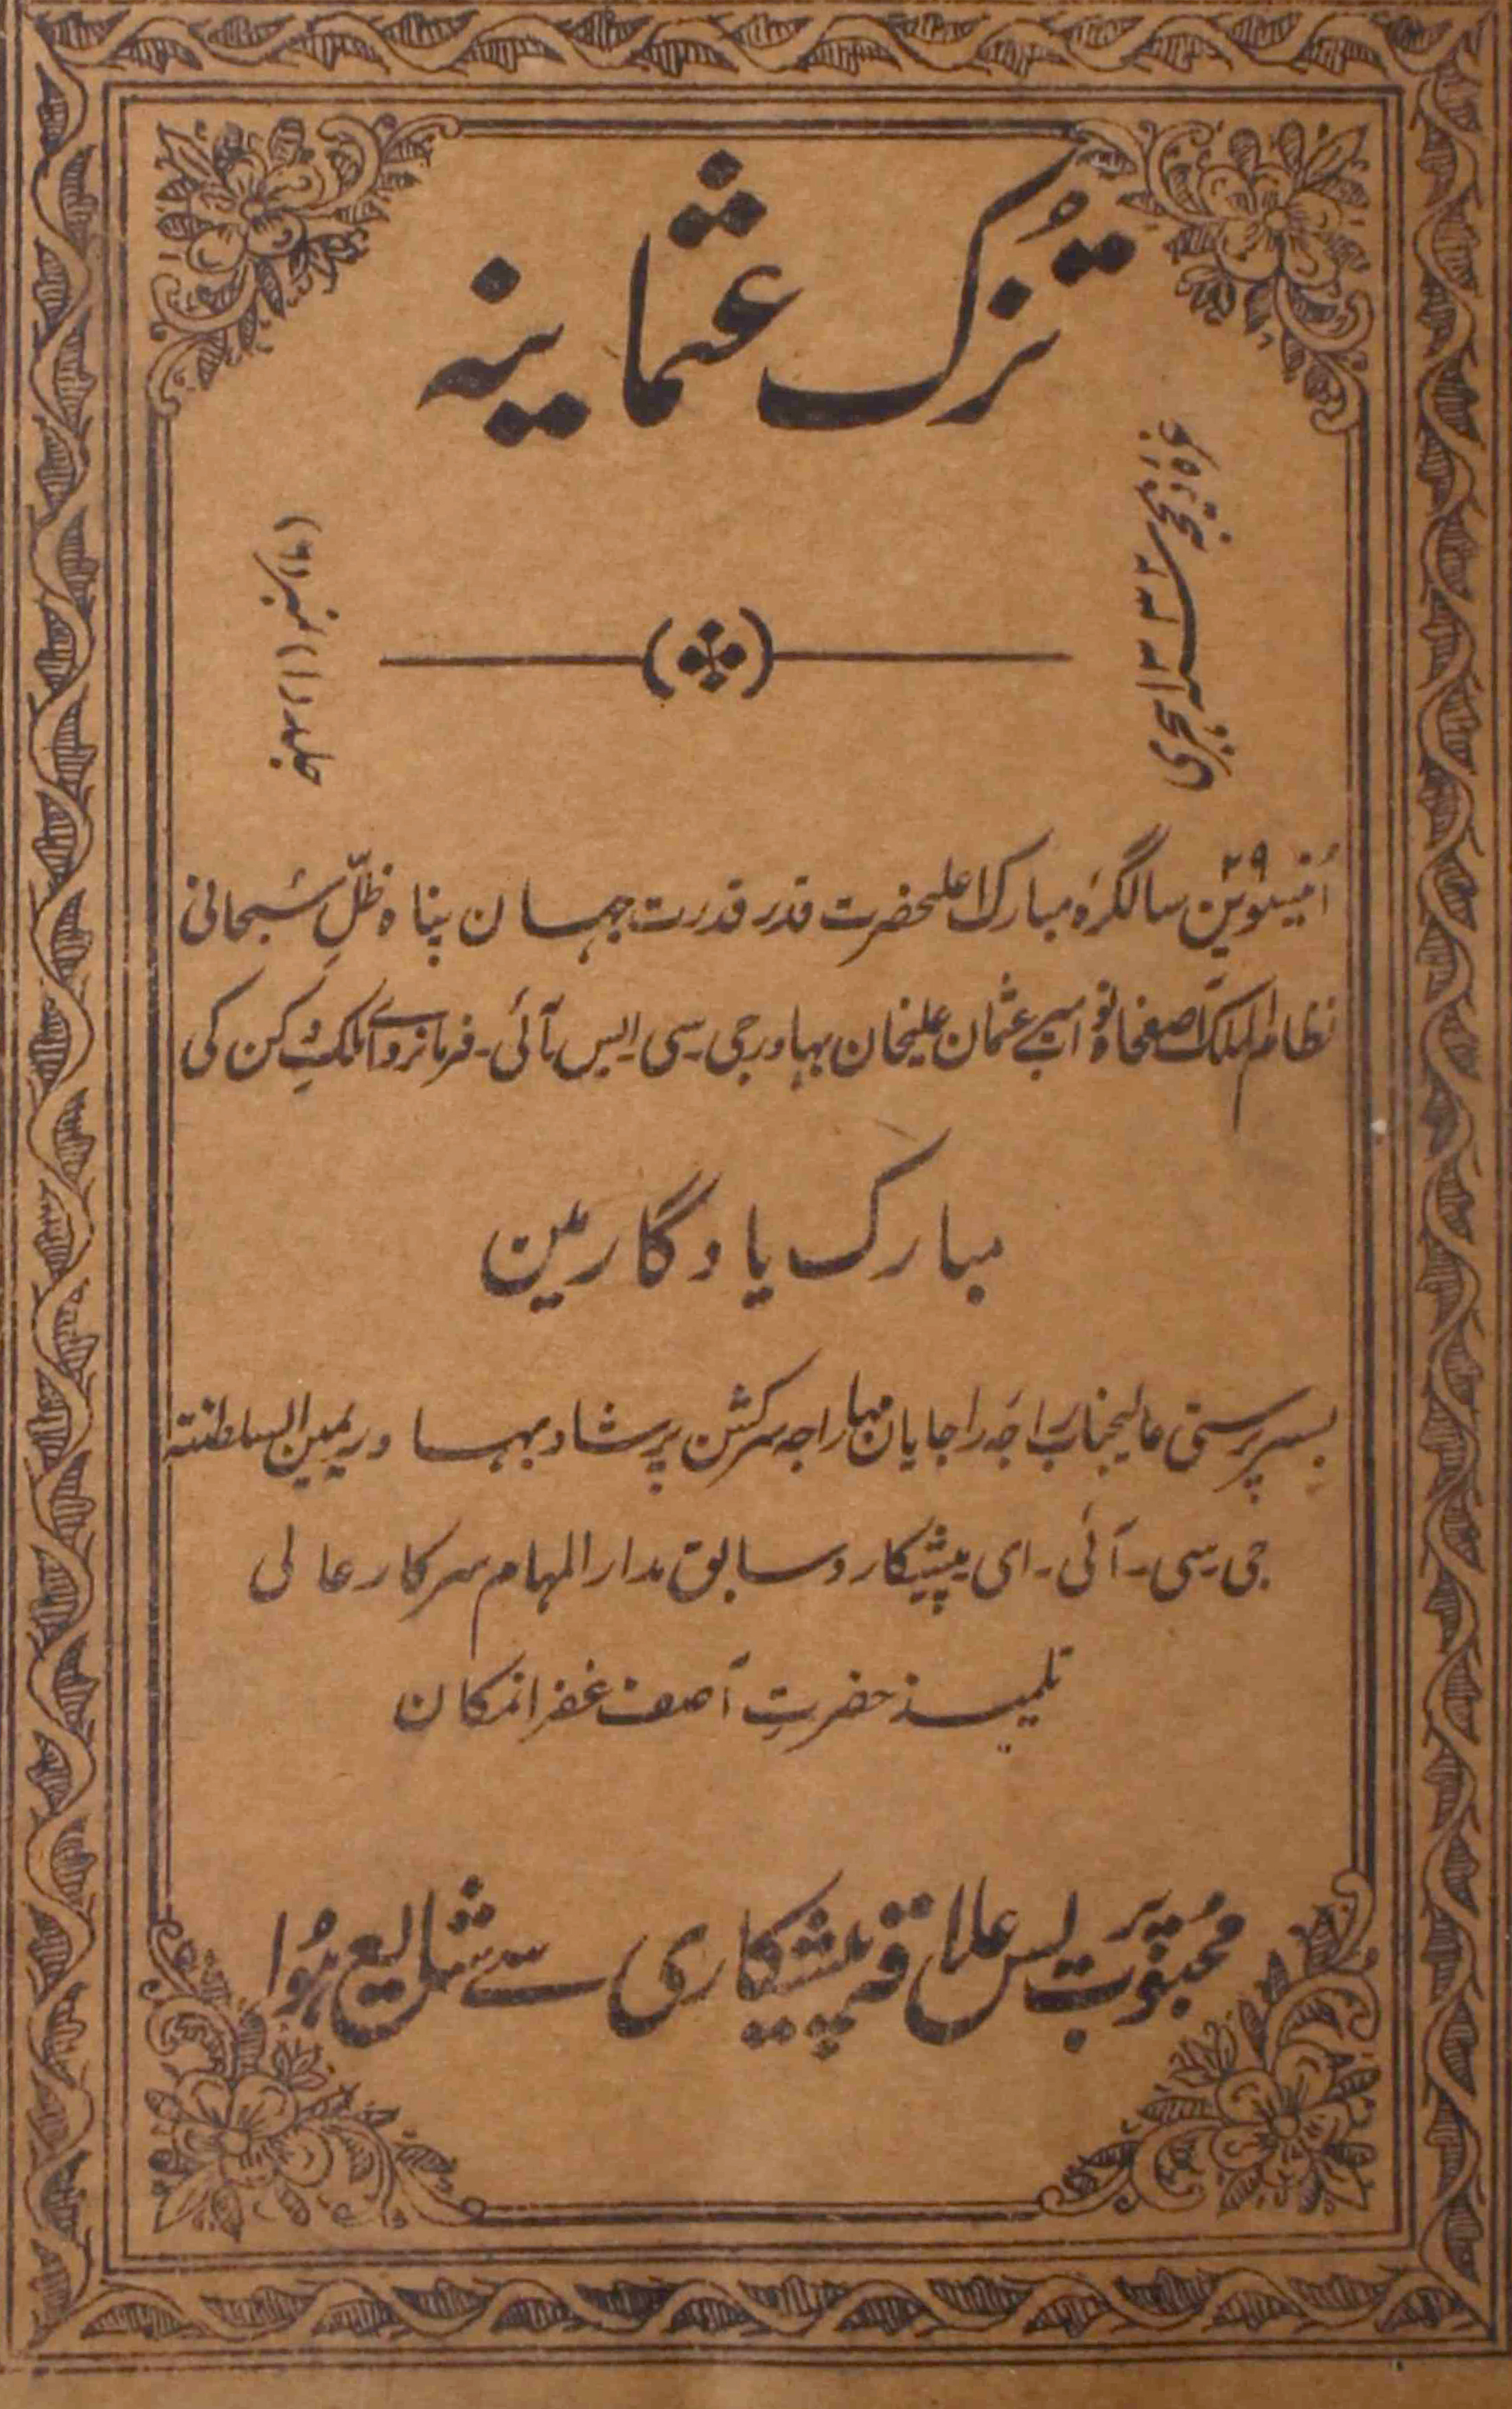 تزک عثمانیہ
غرہ ذیحجہ سنہ ۱۳۳۲ ہجری
جلد (۱) نمبر (۶)
اُنتیسویں ۲۹ سالگرہ مبارک اعلیحضرت قدر قدرت جہان پناہ ظلّ سبحانی
نظام الملک آصفجاہ نواب میر عثمان علیخان بہادر جی۔سی۔ایس۔آئی۔فرمانروائے ملک دکن کی
مبارک یادگار مین
بسرپرستی عالیجناب راجہ راجایان مہاراجہ سرکشن پرشاد بہادر یمین السلطنتہ
جی۔سی۔آئی۔ای پیشکار و سابق مدار المہام سرکار عالی
تلمیذ حضرت آصف غفرانمکان
محبوب پریس علاقہ پیشکاری سے شایع ہُوا